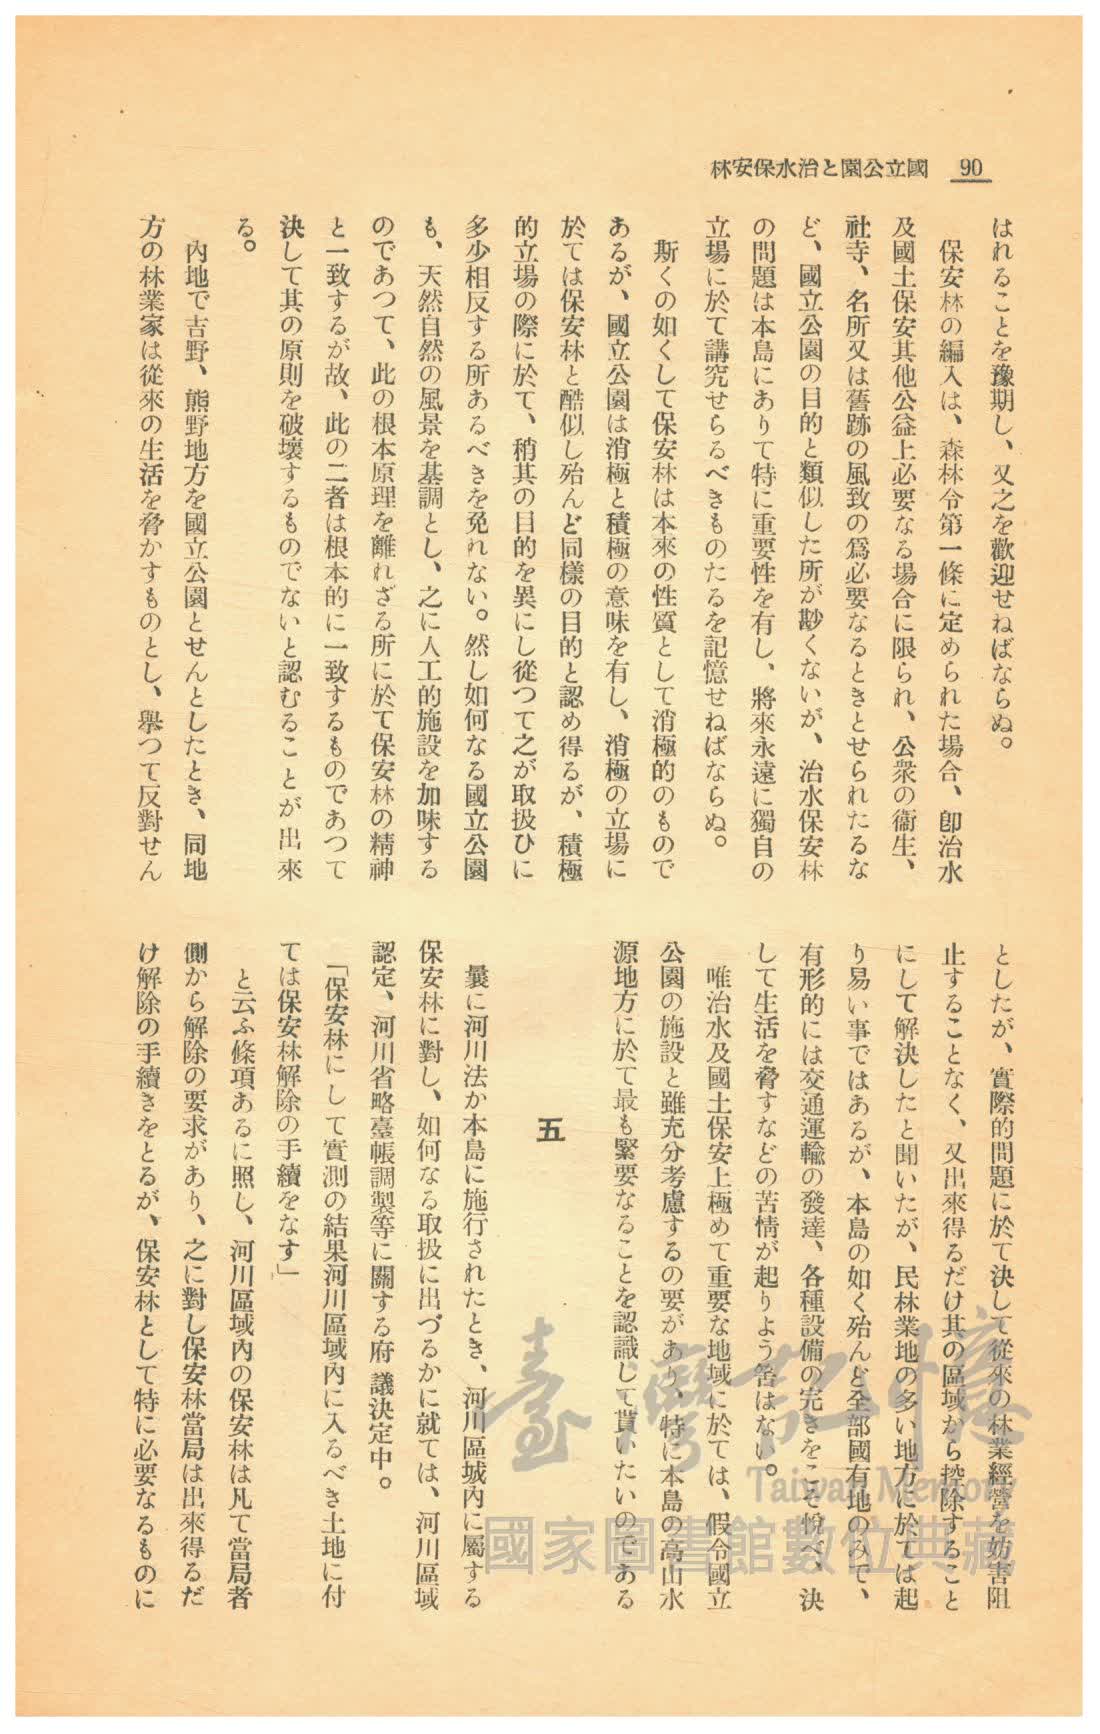 90
林安保水治と園公立國
はれることを豫期し、又之を歡迎せねばならぬ。
保安林の編入は、森林令第一條に定められた場合、卽治水
及國土保安其他公益上必要なる場合に限られ、公衆の衞生、
社寺、名所又は舊跡の風致の爲必要なるときとせられたるな
ど、國立公園の目的と類似した所が尠くないが、治水保安林
の問題は本島にありて特に重要性を有し、將來永遠に獨自の
立場に於て講究せらるべきものたるを記憶せねばならぬ。
斯くの如くして保安林は本來の性質として消極的のもので
あるが、國立公園は消極と積極の意味を有し、消極の立場に
於ては保安林と酷似し殆んど同樣の目的と認め得るが、積極
的立場の際に於て、稍其の目的を異にし從つて之が取扱ひに
多少相反する所あるべきを免れない。然し如何なる國立公園
も、天然自然の風景を基調とし、之に人工的施設を加味する
のであつて、此の根本原理を離れざる所に於て保安林の精神
と一致するが故、此の二者は根本的に一致するものであつて
決して其の原則を破壞するものでないと認むることが出來
る。
內地で吉野、熊野地方を國立公園とせんとしたとき、同地
方の林業家は從來の生活を脅かすものとし、擧つて反對せん
としたが、實際的問題に於て決して從來の林業經營を妨害阻
止することなく、又出來得るだけ其の區域から控除すること
にして解決したと聞いたが、民林業地の多い地方に於ては起
り易い事ではあるが、本島の如く殆んど全部國有地のみで、
有形的には交通運輸の發達、各種設備の完きをこそ悅べ、決
して生活を脅すなどの苦情が起りよう筈はない。
唯治水及國土保安上極めて重要な地域に於ては、假令國立
公園の施設と雖充分考慮するの要があり、特に本島の高山水
源地方に於て最も緊要なることを認識して貰いたいのである
五
曩に河川法か本島に施行されたとき、河川區域內に屬する
保安林に對し、如何なる取扱に出づるかに就ては、河川區域
認定、河川省略臺帳調製等に關する府議決定中。
「保安林にして實測の結果河川區域內に入るべき土地に付
ては保安林解除の手續をなす」
と云ふ條項あるに照し、河川區域內の保安林は凡て當局者
側から解除の要求があり、之に對し保安林當局は出來得るだ
け解除の手續きをとるが、保安林として特に必要なるものに
臺灣記憶
Taiwan Memory
國家圖書館數位典藏